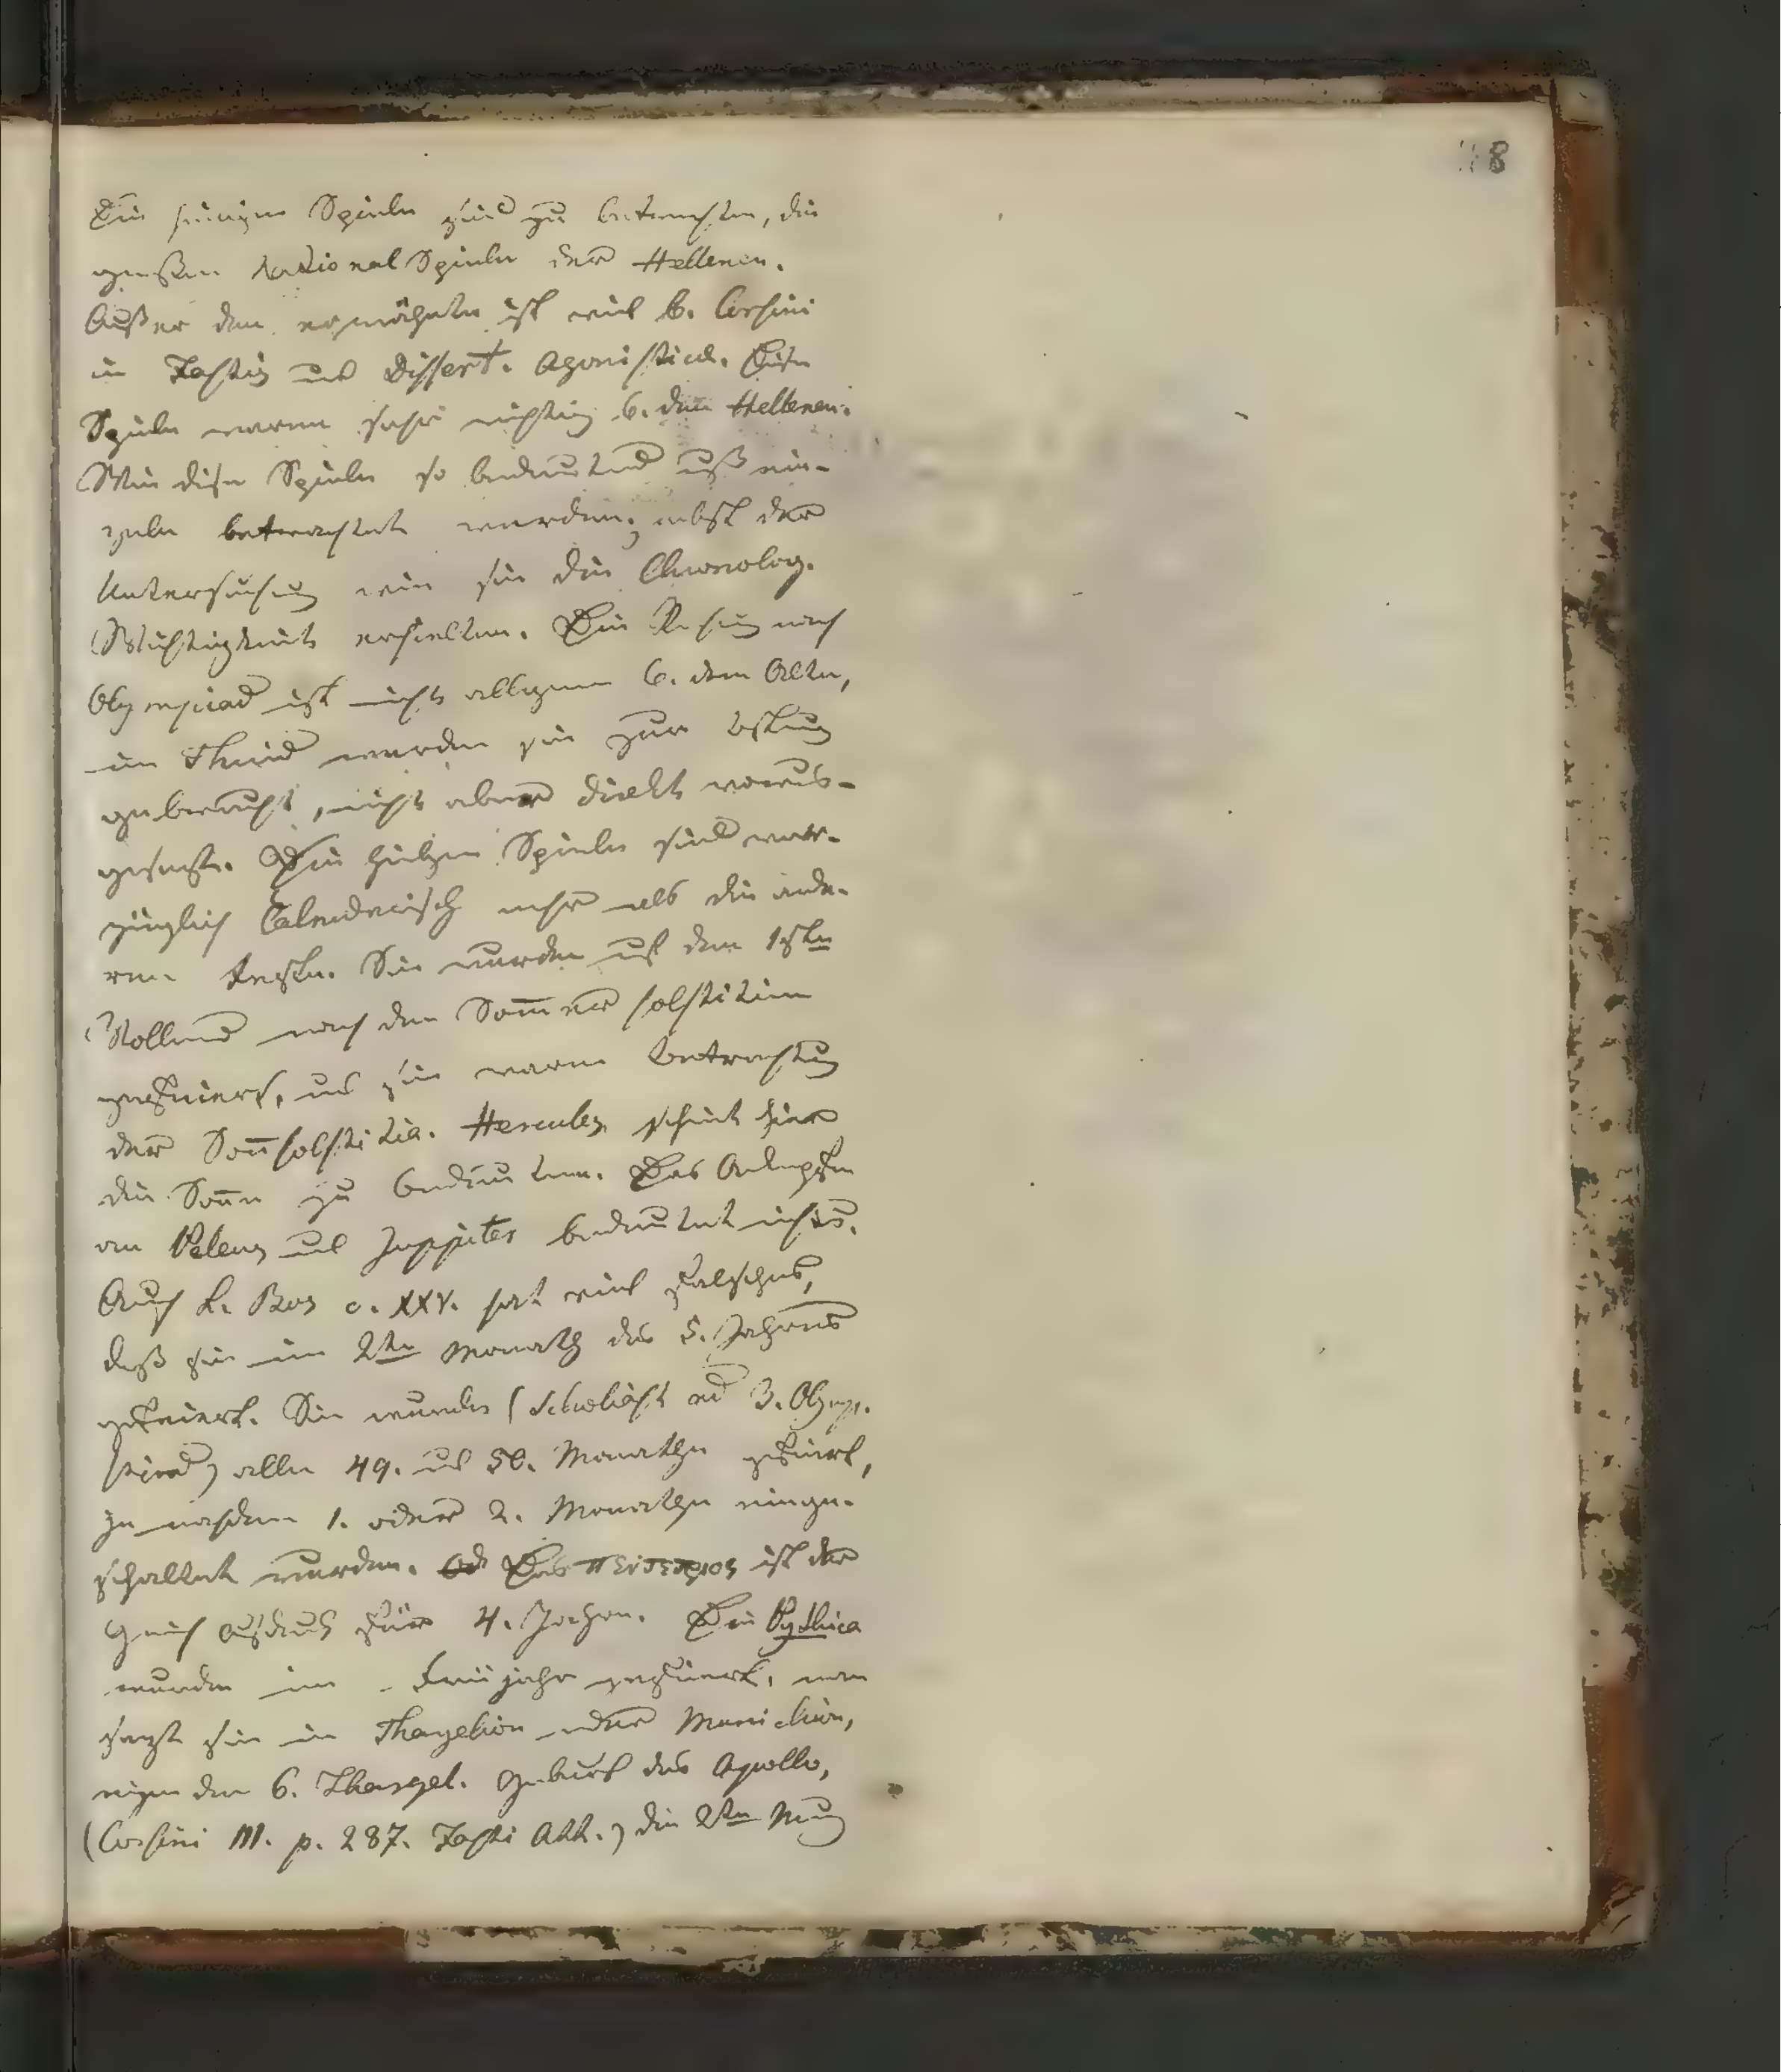 18
Die heiligen Spiele sind zu betrachten, die
großen NationalSpiele der Hellenen.
Außer den erwähnten ist viel b. Corsini
in Fastis und Dissert. Agonisticae. Diese
Spiele waren sehr wichtig b. den Hellenen.
Wie diese Spiele so bedeutend muß ein-
zeln betrachtet werden, nebst der
Untersuchung wie sie die Chronolog.
Wichtigkeit erhielten. Die Rechnung nach
Olympiad ist nicht allgemein b. den Alten,
im Thucid werden sie zur
gebraucht, nicht aber direkt voraus-
gesezt. Die heiligen Spiele sind vor-
züglich Calendarisch mehr als die ande-
ren Festen. Sie wurden auf den 1sten
Vollmond nach dem Som̄er solstitium
gefeiert, und sie waren Betrachtung
der Son̄solstitia. Hercules scheint hier
die Son̄e zu bedeuten. Das Anknüpfen
an Peleus und Juppiter bedeutet nichts.
Auch L. Bos c. XXV. hat viel Falsches,
daß sie im 2ten Monath des 5. Jahres
gefeiert. Sie wurden (Scholiast ad 3. Olymp.
Pind) alle 49. und 50. Monathe gefeiert,
je nachdem 1. oder 2. Monathe einge-
schaltet wurden. Das ist der
Griech Ausdruck für 4. Jahre. Die Pythica
wurden im Früjahr gefeiert, man
sezt sie in Thargelion oder Munichion,
wegen den 6. Thargel. Geburt des Apollo,
(Corsini III. p. 287. Fasti Att.) die 2te